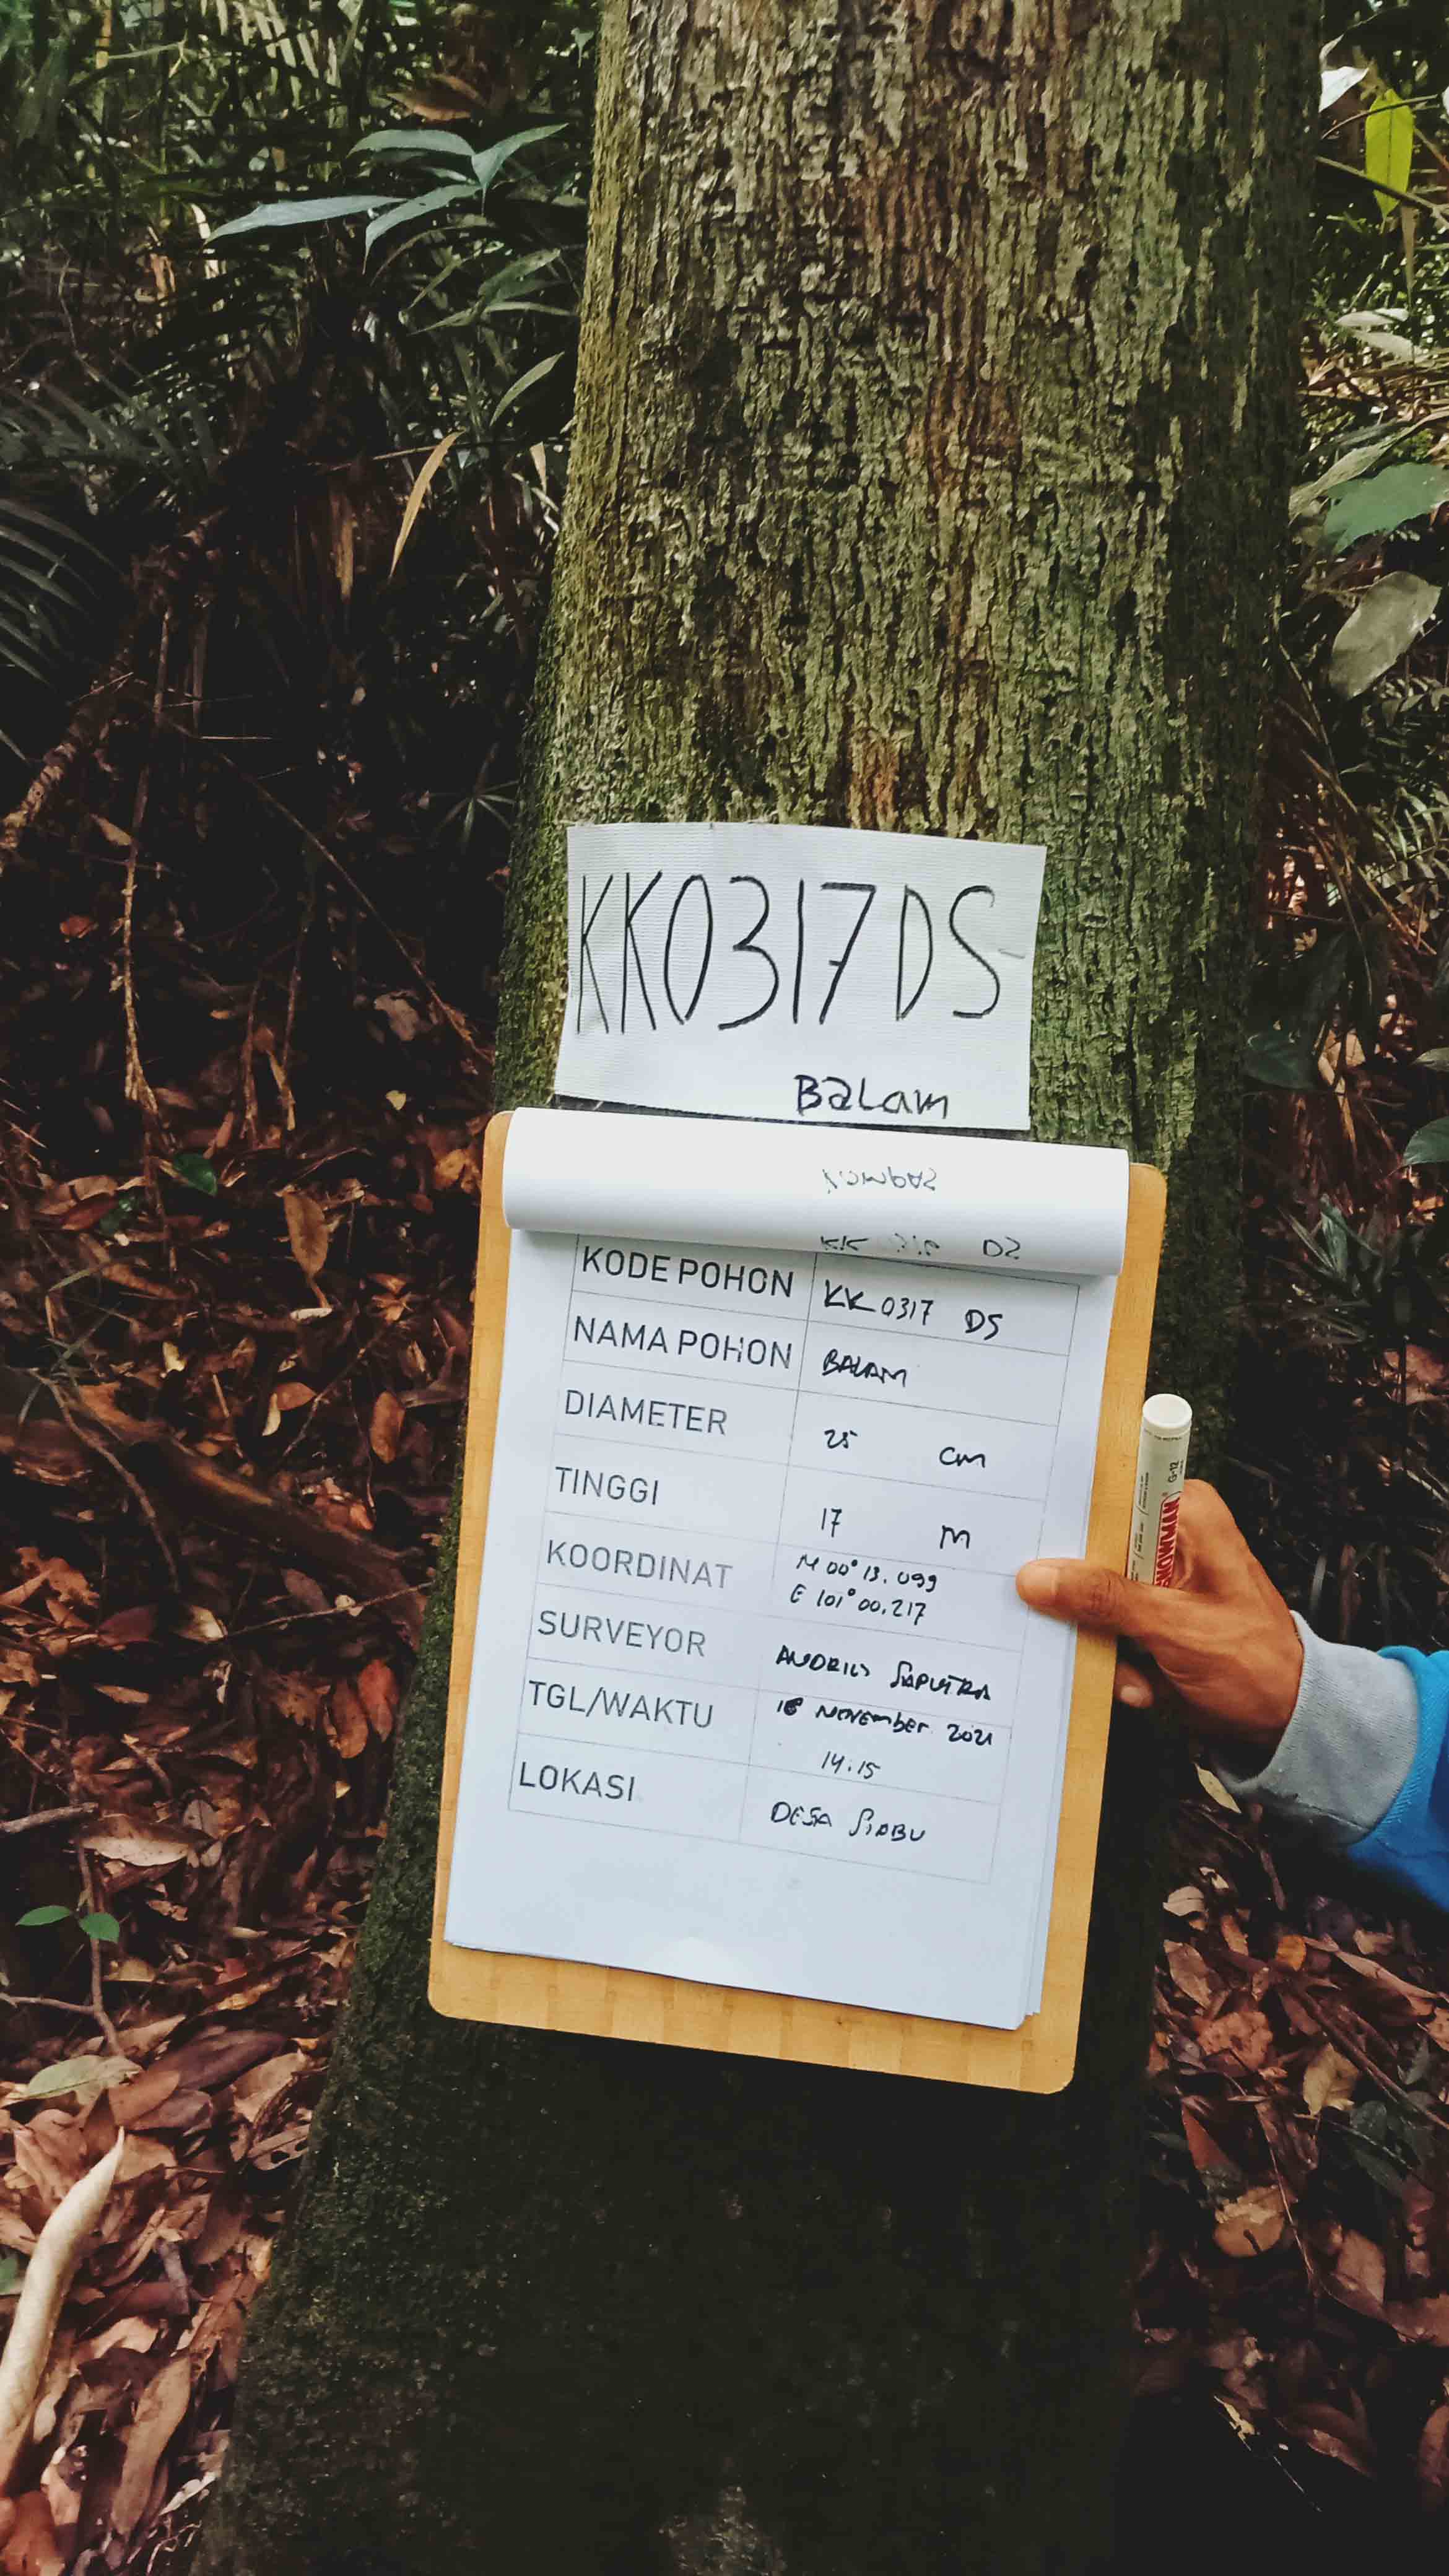 KK0317DS
Balam
KODE POHON KK 0317 DS
NAMA POHON BALAM
DIAMETER 25 cm
TINGGI 17 M
KOORDINAT N 00° 13.099
E 101° 00.217
SURVEYOR SAPUTRA
TGL/WAKTU November 2021
14.15
LOKASI DESA SIABU
G-12